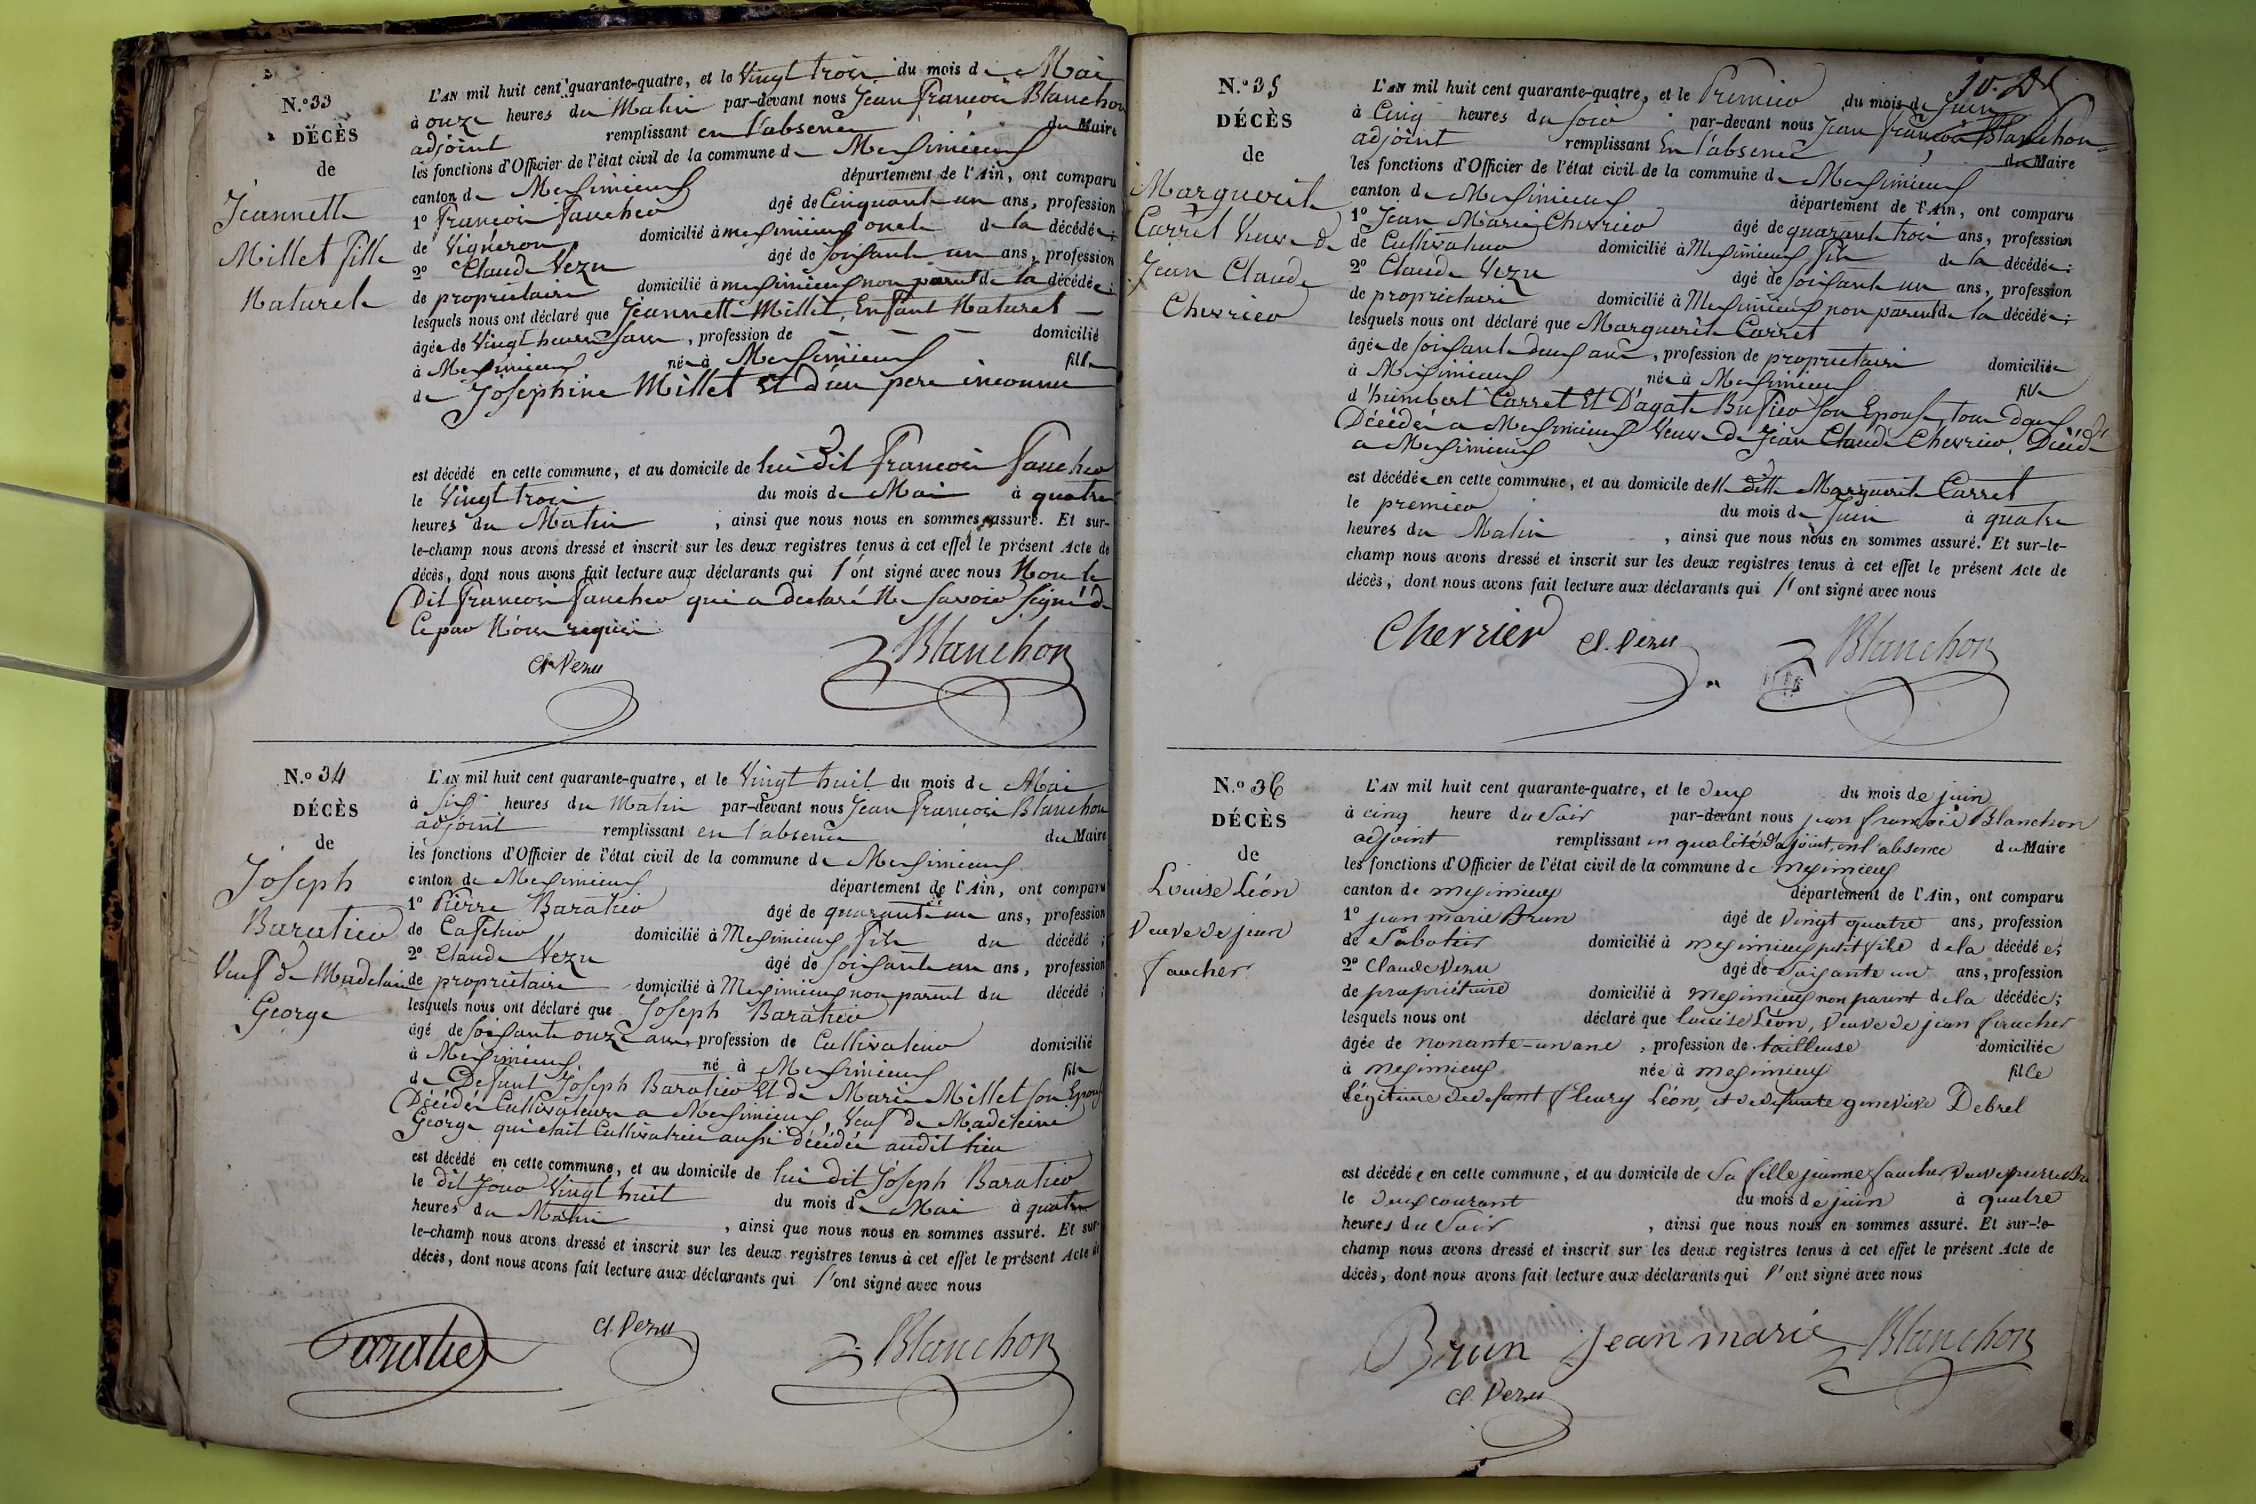 N.° 33
DÉCÈS
de
Jeannette
Millet fille
Naturele
L'AN mil huit cent quarante-quatre, et le Vingt trois du mois de Mai
à onze heures du Matin par-devant nous Jean François Blanchon
adjoint remplissant en l'absence du Maire
les fonctions d'Officier de l'état civil de la commune de Meximieux
canton de Meximieux département de l'Ain, ont comparu
1° François Faucher âgé de Cinquante un ans, profession
de Vigneron domicilié à meximieux oncle de la décédée;
2° Claude Vezu âgé de soixante un ans, profession
de proprietaire domicilié à meximieux non parent de la décédée;
lesquels nous ont déclaré que Jeannette Millet, Enfant Naturel
âgée de Vingt heures jour, profession de domicilié
à Meximieux née à Meximieux fille
de Josephine Millet et d'un pere inconnu
est décédé en cette commune, et au domicile de lui dit François Faucher
le Vingt trois du mois de Mai à quatre
heures du Matin, ainsi que nous nous en sommes assuré. Et sur-
le-champ nous avons dressé et inscrit sur les deux registres tenus à cet effet le présent Acte de
décès, dont nous avons fait lecture aux déclarants qui l'ont signé avec nous Non le
Dit François Faucher qui a declaré Ne savoir signé de
Ce par Nous requis
Cl. Vezu Blanchon
N.° 34
DÉCÈS
de
Joseph
Baratier
Veuf de Madelaine
George
L'AN mil huit cent quarante-quatre, et le Vingt huit du mois de Mai
à six heures du Matin par-devant nous Jean François Blanchon
adjoint remplissant en l'absence du Maire
les fonctions d'Officier de l'état civil de la commune de Meximieux
canton de Meximieux département de l'Ain, ont comparu
1° Pierre Baratier âgé de quarante un ans, profession
de Caffetier domicilié à Meximieux fils du décédé;
2° Claude Vezu âgé de soixante un ans, profession
de propriétaire domicilié à Meximieux non parent du décédé;
lesquels nous ont déclaré que Joseph Baratier
âgé de soixante onze ans, profession de Cultivateur domicilié
à Meximieux né à Meximieux fils
de Defunt Joseph Baratier Et de Marie Millet son Epouse
Décédés Cultivateurs a Meximieux, Veuf de Madeleine
George qui était Cultivatrice aussi décédée audit lieu
est décédé en cette commune, et au domicile de lui dit Joseph Baratier
le dit Jour Vingt huit du mois de Mai à quatre
heures du Matin, ainsi que nous nous en sommes assuré. Et sur-
le-champ nous avons dressé et inscrit sur les deux registres tenus à cet effet le présent Acte de
décès, dont nous avons fait lecture aux déclarants qui l'ont signé avec nous
Baratier Cl. Vezu Blanchon
N.° 35
DÉCÈS
de
Marguerite
Carret Veuve de
Jean Claude
Chevrier
L'AN mil huit cent quarante-quatre, et le Premier du mois de Juin
à Cinq heures du soir par-devant nous Jean François Blanchon
adjoint remplissant En l'absence du Maire
les fonctions d'Officier de l'état civil de la commune de Meximieux
canton de Meximieux département de l'Ain, ont comparu
1° Jean Marie Chevrier âgé de quarante trois ans, profession
de Cultivateur domicilié à Meximieux fils de la décédée;
2° Claude Vezu âgé de soixante un ans, profession
de proprietaire domicilié à Meximieux non parent de la décédée;
lesquels nous ont déclaré que Marguerite Carret
âgée de soixante deux ans, profession de proprietaire domiciliée
à Meximieux née à Meximieux fille
d'humbert Carret Et D'agate Bussier son Epouse, tous deux
Décédés a Meximieux Veuve de Jean Claude Chevrier, Décédé
a Meximieux
est décédée en cette commune, et au domicile de lle dite Marguerite Carret
le premier du mois de Juin à quatre
heures du Matin, ainsi que nous nous en sommes assuré. Et sur-le-
champ nous avons dressé et inscrit sur les deux registres tenus à cet effet le présent Acte de
décès, dont nous avons fait lecture aux déclarants qui l'ont signé avec nous
Cherrier Cl. Vezu Blanchon
N.° 36
DÉCÈS
de
Louise Léon
Veuve de jean
faucher
L'AN mil huit cent quarante-quatre, et le deux du mois de juin
à cinq heure du Soir par-devant nous jean françois Blanchon
adjoint remplissant en qualité d'ajoint, ent l'absence du Maire
les fonctions d'Officier de l'état civil de la commune de meximieux
canton de meximieux département de l'Ain, ont comparu
1° jean marie Brun âgé de Vingt quatre ans, profession
de Sabotier domicilié à meximieux petit fils de la décédée;
2° Claude Vezu âgé de Soixante un ans, profession
de propriétaire domicilié à meximieux non parent de la décédée;
lesquels nous ont déclaré que louise Léon, Veuve de jean faucher
âgée de nonante-un ans, profession de tailleuse domiciliée
à meximieux née à meximieux fille
légitime de defunt fleury Léon, et de defunte genevieve Debrel
est décédée en cette commune, et au domicile de Sa fille jeanne faucher Veuve pierre Brun
le deux courant du mois de juin à quatre
heures du Soir, ainsi que nous nous en sommes assuré. Et sur-le-
champ nous avons dressé et inscrit sur les deux registres tenus à cet effet le présent Acte de
décès, dont nous avons fait lecture aux déclarants qui l'ont signé avec nous
Brun Jean marie Blanchon
Cl. Vezu